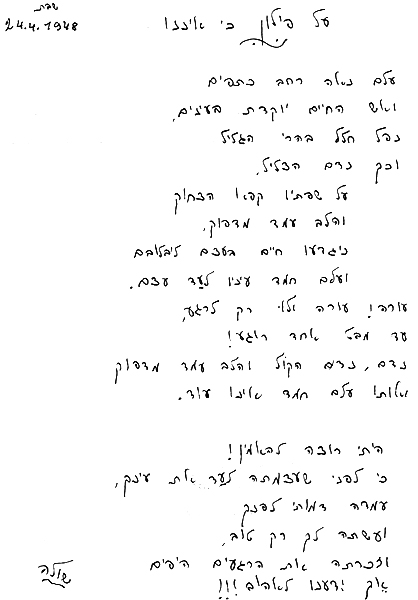 שבת
24.4.1948
על פילון כי איננו
עלם נאה רחב כתפים
ואש החיים יוקדת בעינים,
נפל חלל בהרי הגליל
וכך נדם הצליל.
על שפתיו קפא הצחוק
והלב עמד מדפוק,
ניגדעו חיים בעצם ליבלובם
ועלם חמד עיניו לעד עצם.
עורה! עורה אלי רק לרגע,
עד מבט אחד רוגע!
נדם, נדם הקול והלב עמד מדפוק
אותו עלם חמד איננו עוד.
הייתי רוצה להאמין!
כי לפני שעצמתה לעד את עינך,
עמדה דמותי לפנך
ועשתה לך רק טוב,
וזכרתה את הרגעים היפים
איך ידענו לאהוב!!!
שולה